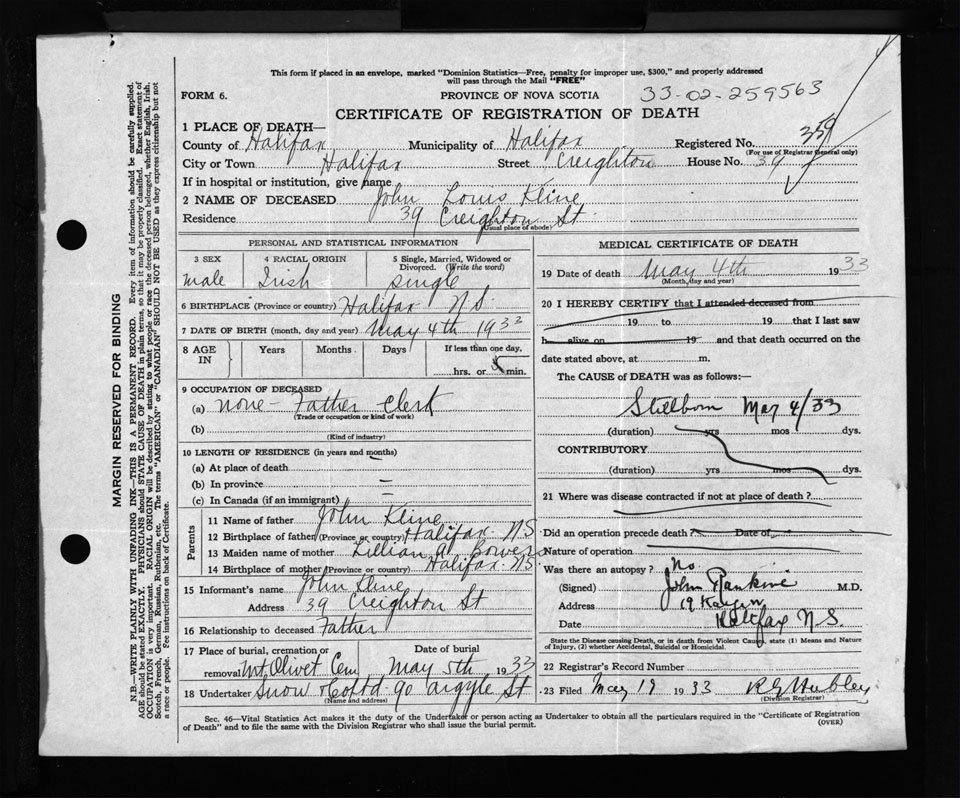 This form if placed in an envelope, marked "Dominion Statistics—Free, penalty for improper use, $300," and properly addressed
will pass through the Mail "FREE"
FORM 6. PROVINCE OF NOVA SCOTIA 33-02-259563
CERTIFICATE OF REGISTRATION OF DEATH
1 PLACE OF DEATH—
County of Halifax Municipality of Halifax Registered No. 359
(For use of Registrar General only)
City or Town Halifax Street Creighton House No. 39
If in hospital or institution, give name
2 NAME OF DECEASED John Louis Kline
Residence 39 Creighton St
(Usual place of abode)
PERSONAL AND STATISTICAL INFORMATION
3 SEX 4 RACIAL ORIGIN 5 Single, Married, Widowed or
Divorced. (Write the word)
male Irish single
6 BIRTHPLACE (Province or country) Halifax N.S.
7 DATE OF BIRTH (month, day and year) May 4th 1933
8 AGE IN Years Months Days If less than one day,
hrs. or 5 min.
9 OCCUPATION OF DECEASED
(a) none - Father Clerk
(Trade or occupation or kind of work)
(b)
(Kind of industry)
10 LENGTH OF RESIDENCE (in years and months)
(a) At place of death
(b) In province
(c) In Canada (if an immigrant)
Parents
11 Name of father John Kline
12 Birthplace of father (Province or country) Halifax N.S
13 Maiden name of mother Lillian A. Bowers
14 Birthplace of mother (Province or country) Halifax N.S.
15 Informant's name John Kline
Address 39 Creighton St
16 Relationship to deceased Father
17 Place of burial, cremation or Date of burial
removal Mt Olivet Cem May 5th 1933
18 Undertaker Snow & Co Ltd 90 Argyle St
(Name and address)
MEDICAL CERTIFICATE OF DEATH
19 Date of death May 4th 1933
(Month, day and year)
20 I HEREBY CERTIFY that I attended deceased from
19 to 19 that I last saw
h alive on 19 and that death occurred on the
date stated above, at m.
The CAUSE of DEATH was as follows:—
Stillborn May 4/33
(duration) yrs mos dys.
CONTRIBUTORY
(duration) yrs mos dys.
21 Where was disease contracted if not at place of death?
Did an operation precede death? Date of
Nature of operation
Was there an autopsy? No
(Signed) John Rankine M.D.
Address 19
Date Halifax N.S.
State the Disease causing Death, or in death from Violent Causes, state (1) Means and Nature
of Injury, (2) whether Accidental, Suicidal or Homicidal.
22 Registrar's Record Number
23 Filed May 19 1933 Hubley
(Division Registrar)
Sec. 46—Vital Statistics Act makes it the duty of the Undertaker or person acting as Undertaker to obtain all the particulars required in the "Certificate of Registration
of Death" and to file the same with the Division Registrar who shall issue the burial permit. (OVER)
MARGIN RESERVED FOR BINDING
N.B.—WRITE PLAINLY WITH UNFADING INK—THIS IS A PERMANENT RECORD. Every item of information should be carefully supplied.
AGE should be stated EXACTLY. PHYSICIANS should STATE CAUSE OF DEATH in plain terms, so that it may be properly classified. Exact statement of
OCCUPATION is very important. RACIAL ORIGIN will be described by stating to what people or race the deceased person belonged, whether English, Irish,
Scotch, French, German, Russian, Ruthenian, etc. The terms "AMERICAN" or "CANADIAN" SHOULD NOT BE USED as they express citizenship but not
a race or people. See instructions on back of Certificate.